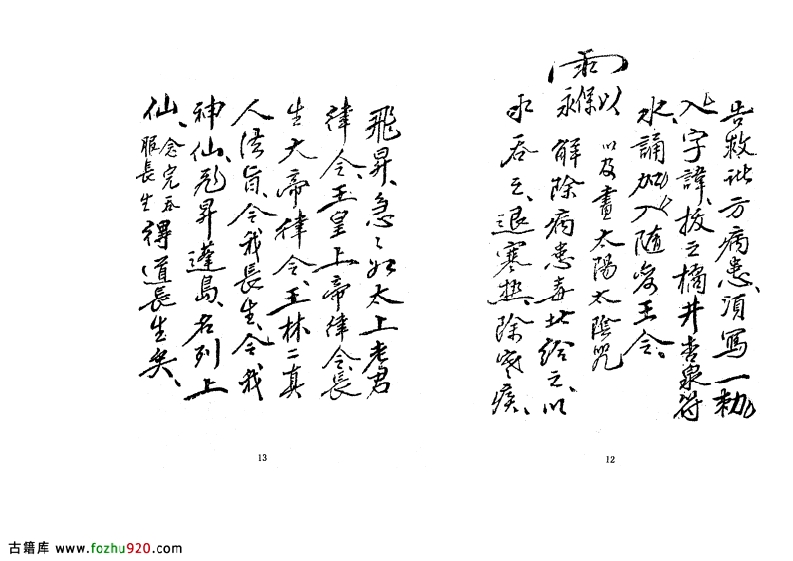 告救此方病患、須寫一勅
入字諱、按之橘井杏泉符
水誦加入随峇王令。
永保以及畫太陽太陰咒
解除病患毒、此給之、以
水吞之、退寒熱、除寒疾、
12
飛昇、急々如太上老君
律令、玉皇上帝律令、長
生大帝律令、王林二真
人法旨、令我長生、令我
神仙、飛昇蓬島、名列上
仙、念完吞服長生得道長生矣、
13
古籍库 www.fozhu920.com